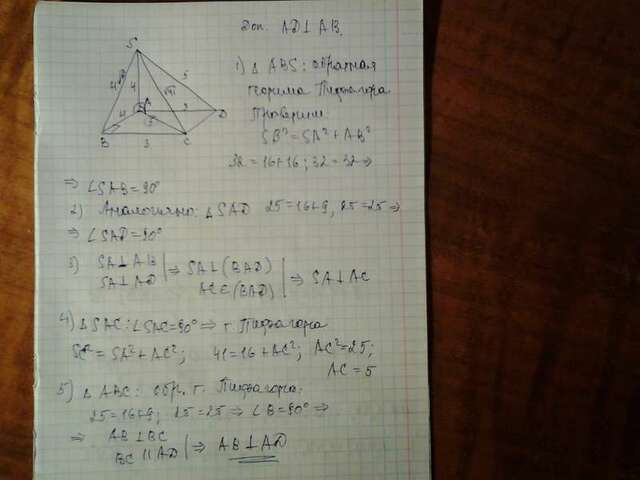 Доп. AD⊥AB.
S
4√2
4
5
√41
4
A
3
D
5
B
3
C
1) △ABS: обратная
теорема Пифагора
Проверим
SB²=SA²+AB²
32=16+16; 32=32⇒
⇒ ∠SAB=90°
2) Аналогично: △SAD 25=16+9, 25=25⇒
⇒ ∠SAD=90°
3) SA⊥AB | ⇒ SA⊥(BAD) | ⇒ SA⊥AC
SA⊥AD | AC∈(BAD)
4) △SAC: ∠SAC=90° ⇒ т. Пифагора
SC²=SA²+AC²; 41=16+AC²; AC²=25;
AC=5
5) △ABC: обр. т. Пифагора:
25=16+9; 25=25 ⇒ ∠B=90° ⇒
⇒ AB⊥BC | ⇒ AB⊥AD
BC∥AD